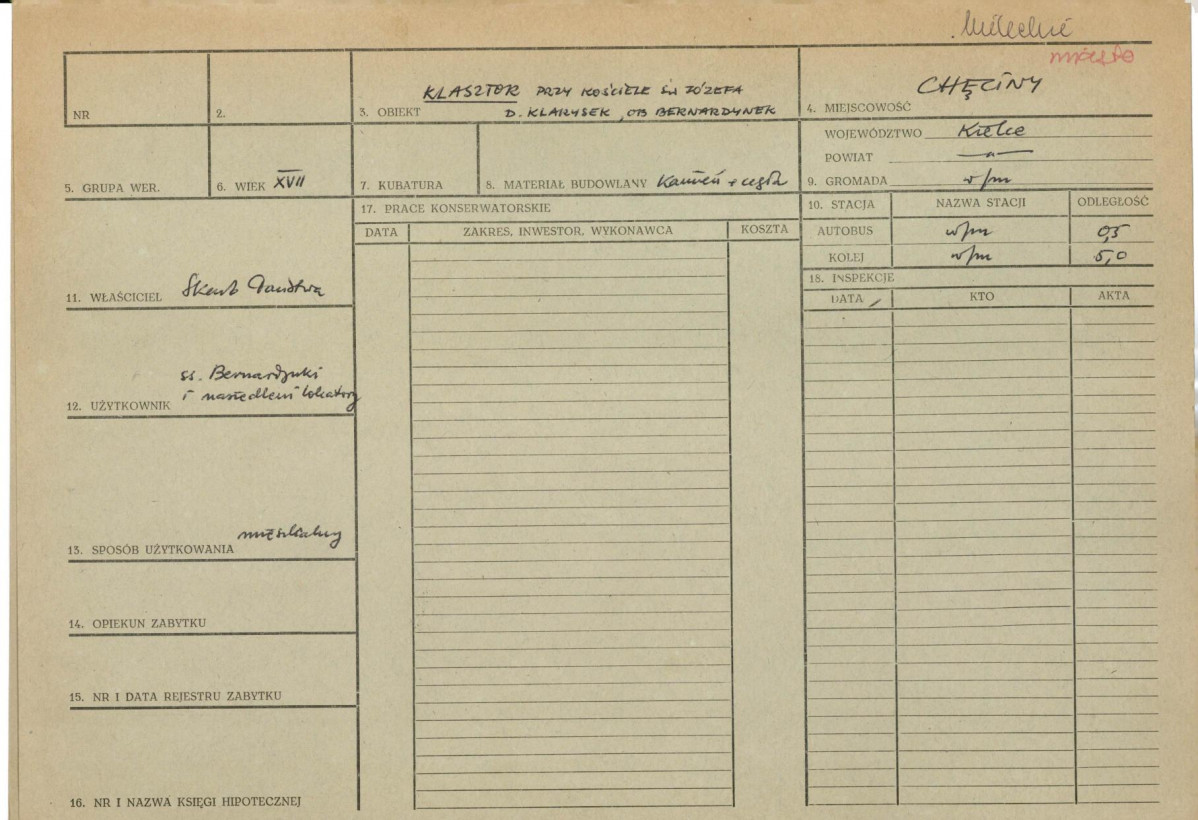 miasto
NR
2.
3. OBIEKT KLASZTOR PRZY KOŚCIELE ŚW JÓZEFA
D. KLARYSEK, OB BERNARDYNEK
4. MIEJSCOWOŚĆ CHĘCINY
WOJEWÓDZTWO Kielce
POWIAT —"—
9. GROMADA w/m
5. GRUPA WER.
6. WIEK XVII
7. KUBATURA
8. MATERIAŁ BUDOWLANY Kamień + cegła
10. STACJA NAZWA STACJI ODLEGŁOŚĆ
AUTOBUS w/m 0,5
KOLEJ w/m 5,0
11. WŁAŚCICIEL Skarb Państwa
12. UŻYTKOWNIK ss. Bernardynki
i lokatorzy
13. SPOSÓB UŻYTKOWANIA mieszkalny
14. OPIEKUN ZABYTKU
15. NR I DATA REJESTRU ZABYTKU
16. NR I NAZWA KSIĘGI HIPOTECZNEJ
17. PRACE KONSERWATORSKIE
DATA ZAKRES, INWESTOR, WYKONAWCA KOSZTA
18. INSPEKCJE
DATA KTO AKTA